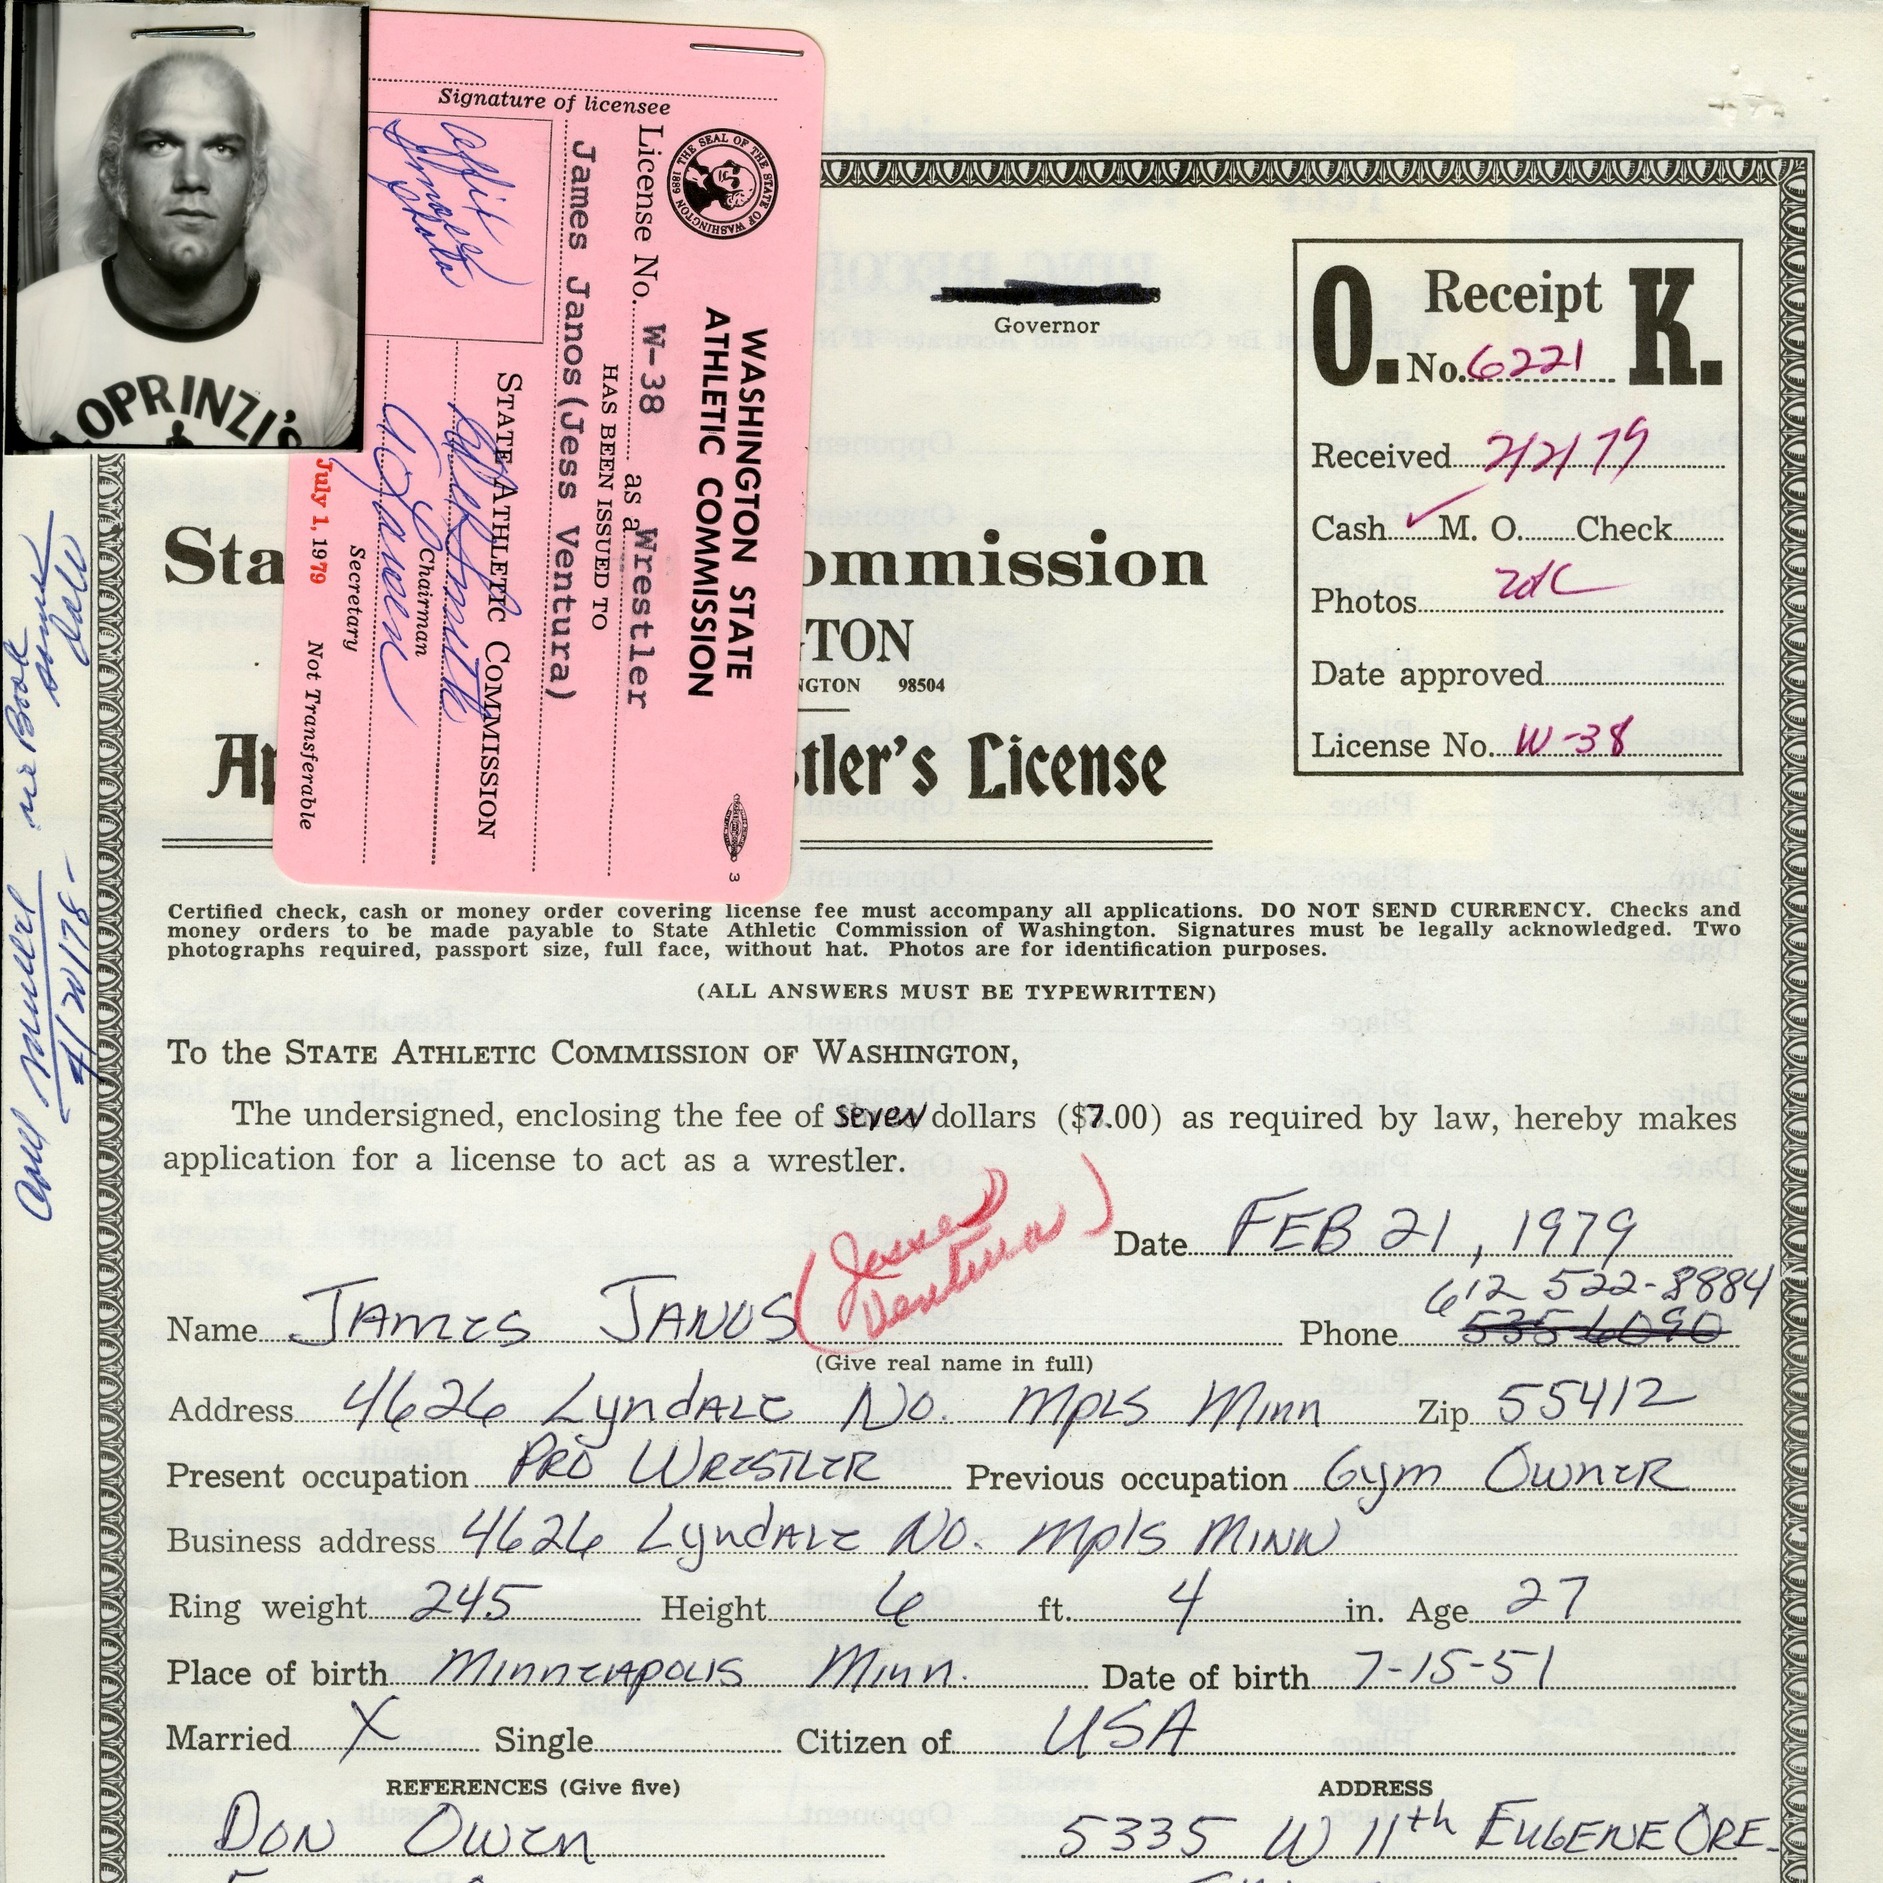 OPRINZI'S
Signature of licensee
THE SEAL OF THE STATE OF WASHINGTON
1889
WASHINGTON STATE
ATHLETIC COMMISSION
License No. W-38 as a Wrestler
HAS BEEN ISSUED TO
James Janos (Jess Ventura)
STATE ATHLETIC COMMISSION
Chairman
Secretary
July 1, 1979 Not Transferable
3
Governor
O. K.
Receipt
No. 6221
Received 2/2/79
Cash ✓ M. O. Check
Photos
Date approved
License No. W-38
Sta ommission
GTON
NGTON 98504
Ap stler's License
4/20/78-
Certified check, cash or money order covering license fee must accompany all applications. DO NOT SEND CURRENCY. Checks and
money orders to be made payable to State Athletic Commission of Washington. Signatures must be legally acknowledged. Two
photographs required, passport size, full face, without hat. Photos are for identification purposes.
(ALL ANSWERS MUST BE TYPEWRITTEN)
To the STATE ATHLETIC COMMISSION OF WASHINGTON,
The undersigned, enclosing the fee of seven dollars ($7.00) as required by law, hereby makes
application for a license to act as a wrestler.
Date FEB 21, 1979
612 522-8884
Name JAMES JANOS (Jesse Ventura) Phone 535 6090
(Give real name in full)
Address 4626 LyndALE No. Mpls Minn Zip 55412
Present occupation PRO WRESTLER Previous occupation Gym OwnER
Business address 4626 LyndALE No. Mpls MINN
Ring weight 245 Height 6 ft. 4 in. Age 27
Place of birth MinnEAPOLIS Minn. Date of birth 7-15-51
Married X Single Citizen of USA
REFERENCES (Give five) ADDRESS
DON OwEn 5335 W 11th EUGENE ORE.